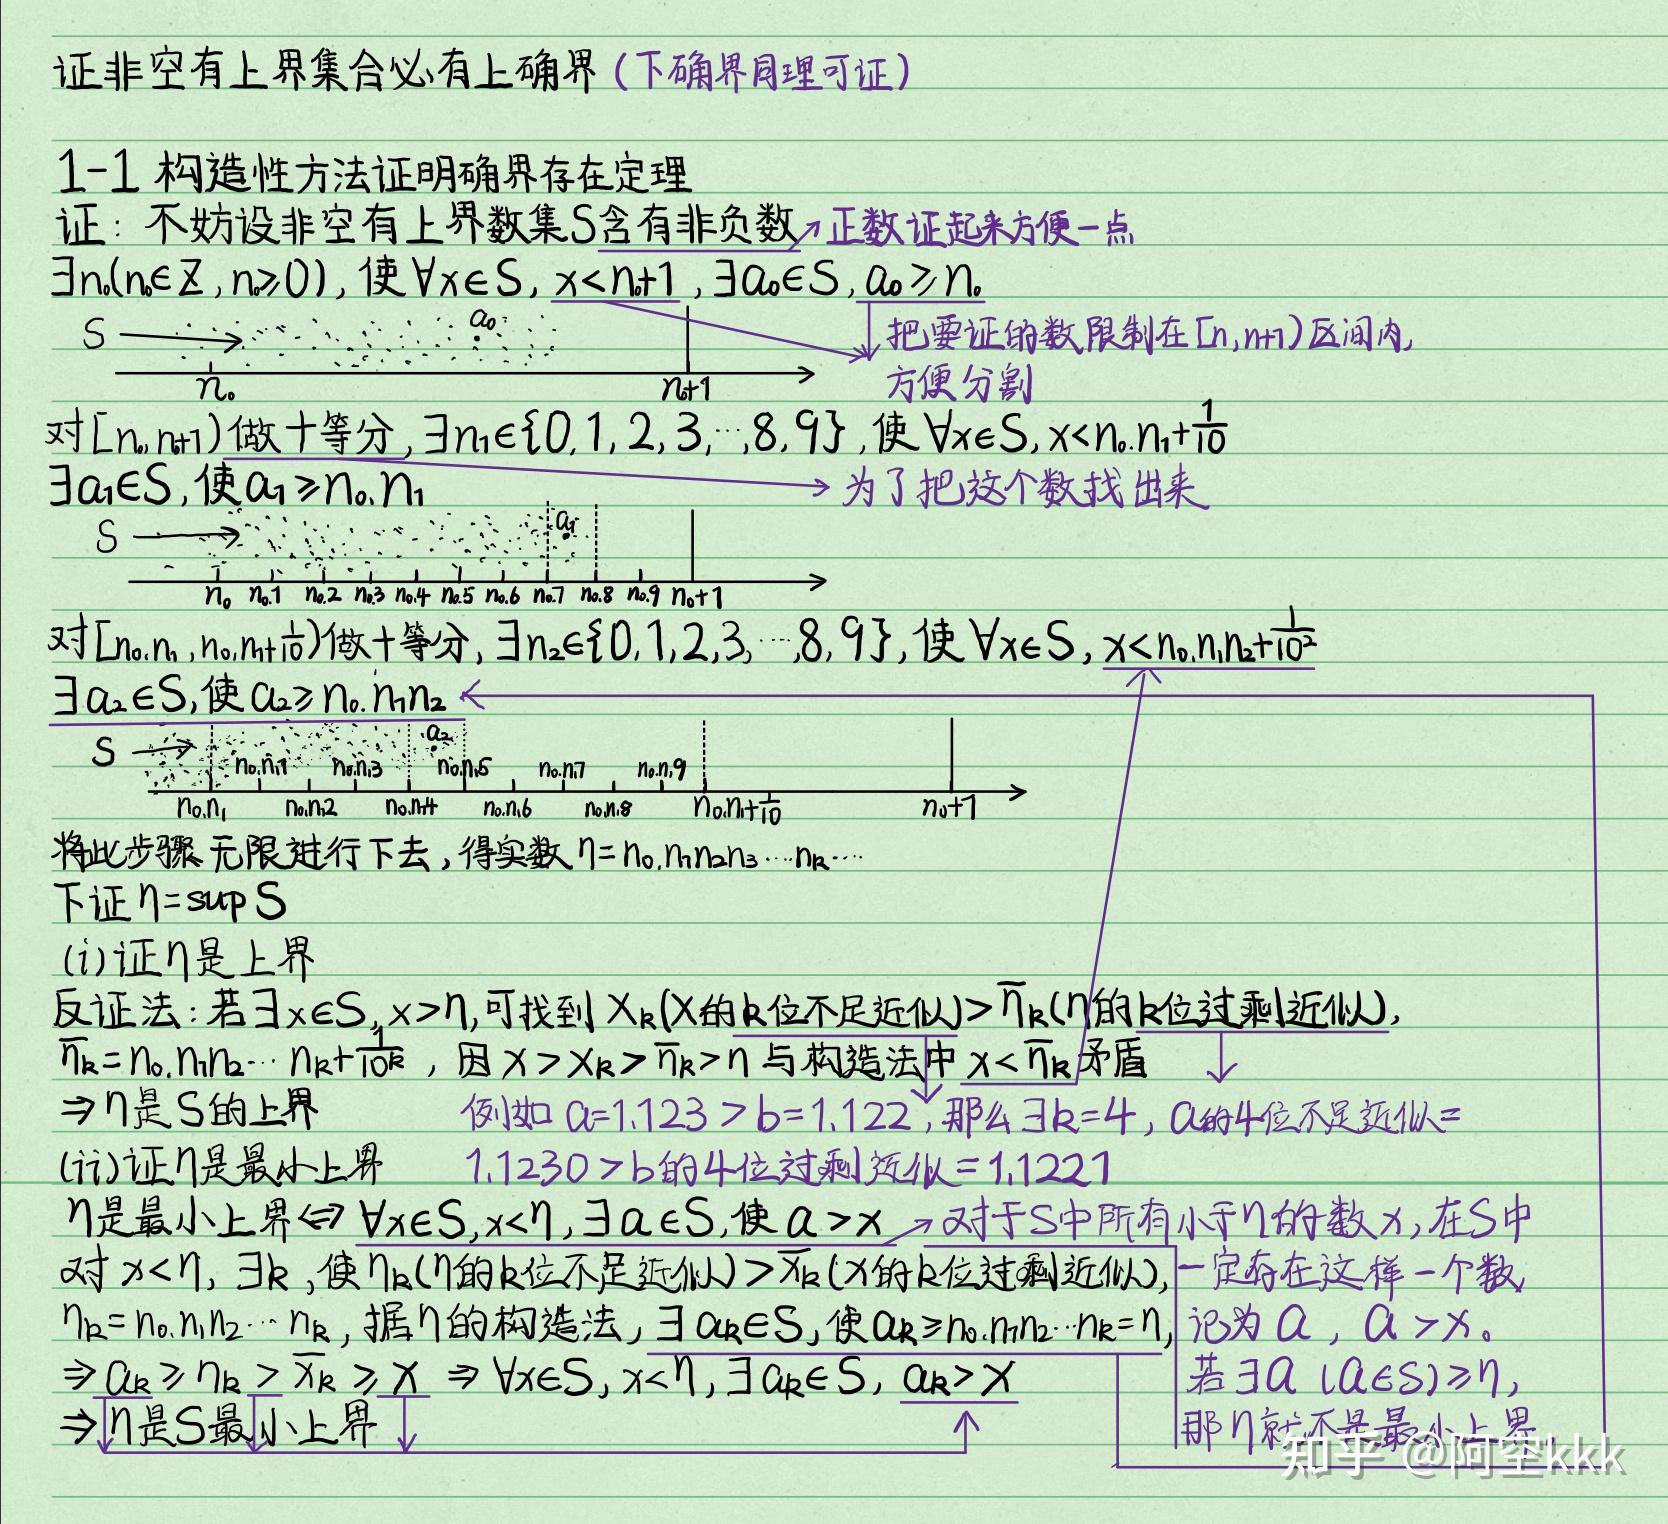 证非空有上界集合必有上确界(下确界同理可证)
1-1 构造性方法证明确界存在定理
证: 不妨设非空有上界数集S含有非负数 ↗正数证起来方便一点
∃n₀(n₀∈Z, n₀≥0), 使∀x∈S, x<n₀+1, ∃a₀∈S, a₀≥n₀
S a₀
把要证的数限制在[n,n+1)区间内,
方便分割
n₀ n₀+1
对[n₀,n₀+1)做十等分, ∃n₁∈{0,1,2,3,…,8,9}, 使∀x∈S, x<n₀.n₁+1/10
∃a₁∈S, 使a₁≥n₀.n₁ 为了把这个数找出来
S a₁
n₀ n₀.1 n₀.2 n₀.3 n₀.4 n₀.5 n₀.6 n₀.7 n₀.8 n₀.9 n₀+1
对[n₀.n₁, n₀.n₁+1/10)做十等分, ∃n₂∈{0,1,2,3,…,8,9}, 使∀x∈S, x<n₀.n₁n₂+1/10²
∃a₂∈S, 使a₂≥n₀.n₁n₂
S a₂
n₀.n₁1 n₀.n₁3 n₀.n₁5 n₀.n₁7 n₀.n₁9
n₀.n₁ n₀.n₁2 n₀.n₁4 n₀.n₁6 n₀.n₁8 n₀.n₁+1/10 n₀+1
将此步骤无限进行下去, 得实数η=n₀.n₁n₂n₃…nₖ…
下证η=sup S
(i)证η是上界
反证法: 若∃x∈S, x>η, 可找到xₖ(x的k位不足近似)>η̅ₖ(η的k位过剩近似),
η̅ₖ=n₀.n₁n₂…nₖ+1/10ᵏ, 因x>xₖ>η̅ₖ>η与构造法中x<η̅ₖ矛盾
⇒η是S的上界 例如a=1.123>b=1.122, 那么∃k=4, a的4位不足近似=
(ii)证η是最小上界 1.1230>b的4位过剩近似=1.1221
η是最小上界⇔∀x∈S, x<η, ∃a∈S, 使a>x ↗对于S中所有小于η的数x, 在S中
对x<η, ∃k, 使ηₖ(η的k位不足近似)>x̅ₖ(x的k位过剩近似), 一定存在这样一个数,
ηₖ=n₀.n₁n₂…nₖ, 据η的构造法, ∃aₖ∈S, 使aₖ≥n₀.n₁n₂…nₖ=η, 记为a, a>x。
⇒aₖ≥ηₖ>x̅ₖ≥x ⇒∀x∈S, x<η, ∃aₖ∈S, aₖ>x 若∃a(a∈S)≥η,
⇒η是S最小上界 那η就不是最小上界
知乎 @阿空kkk